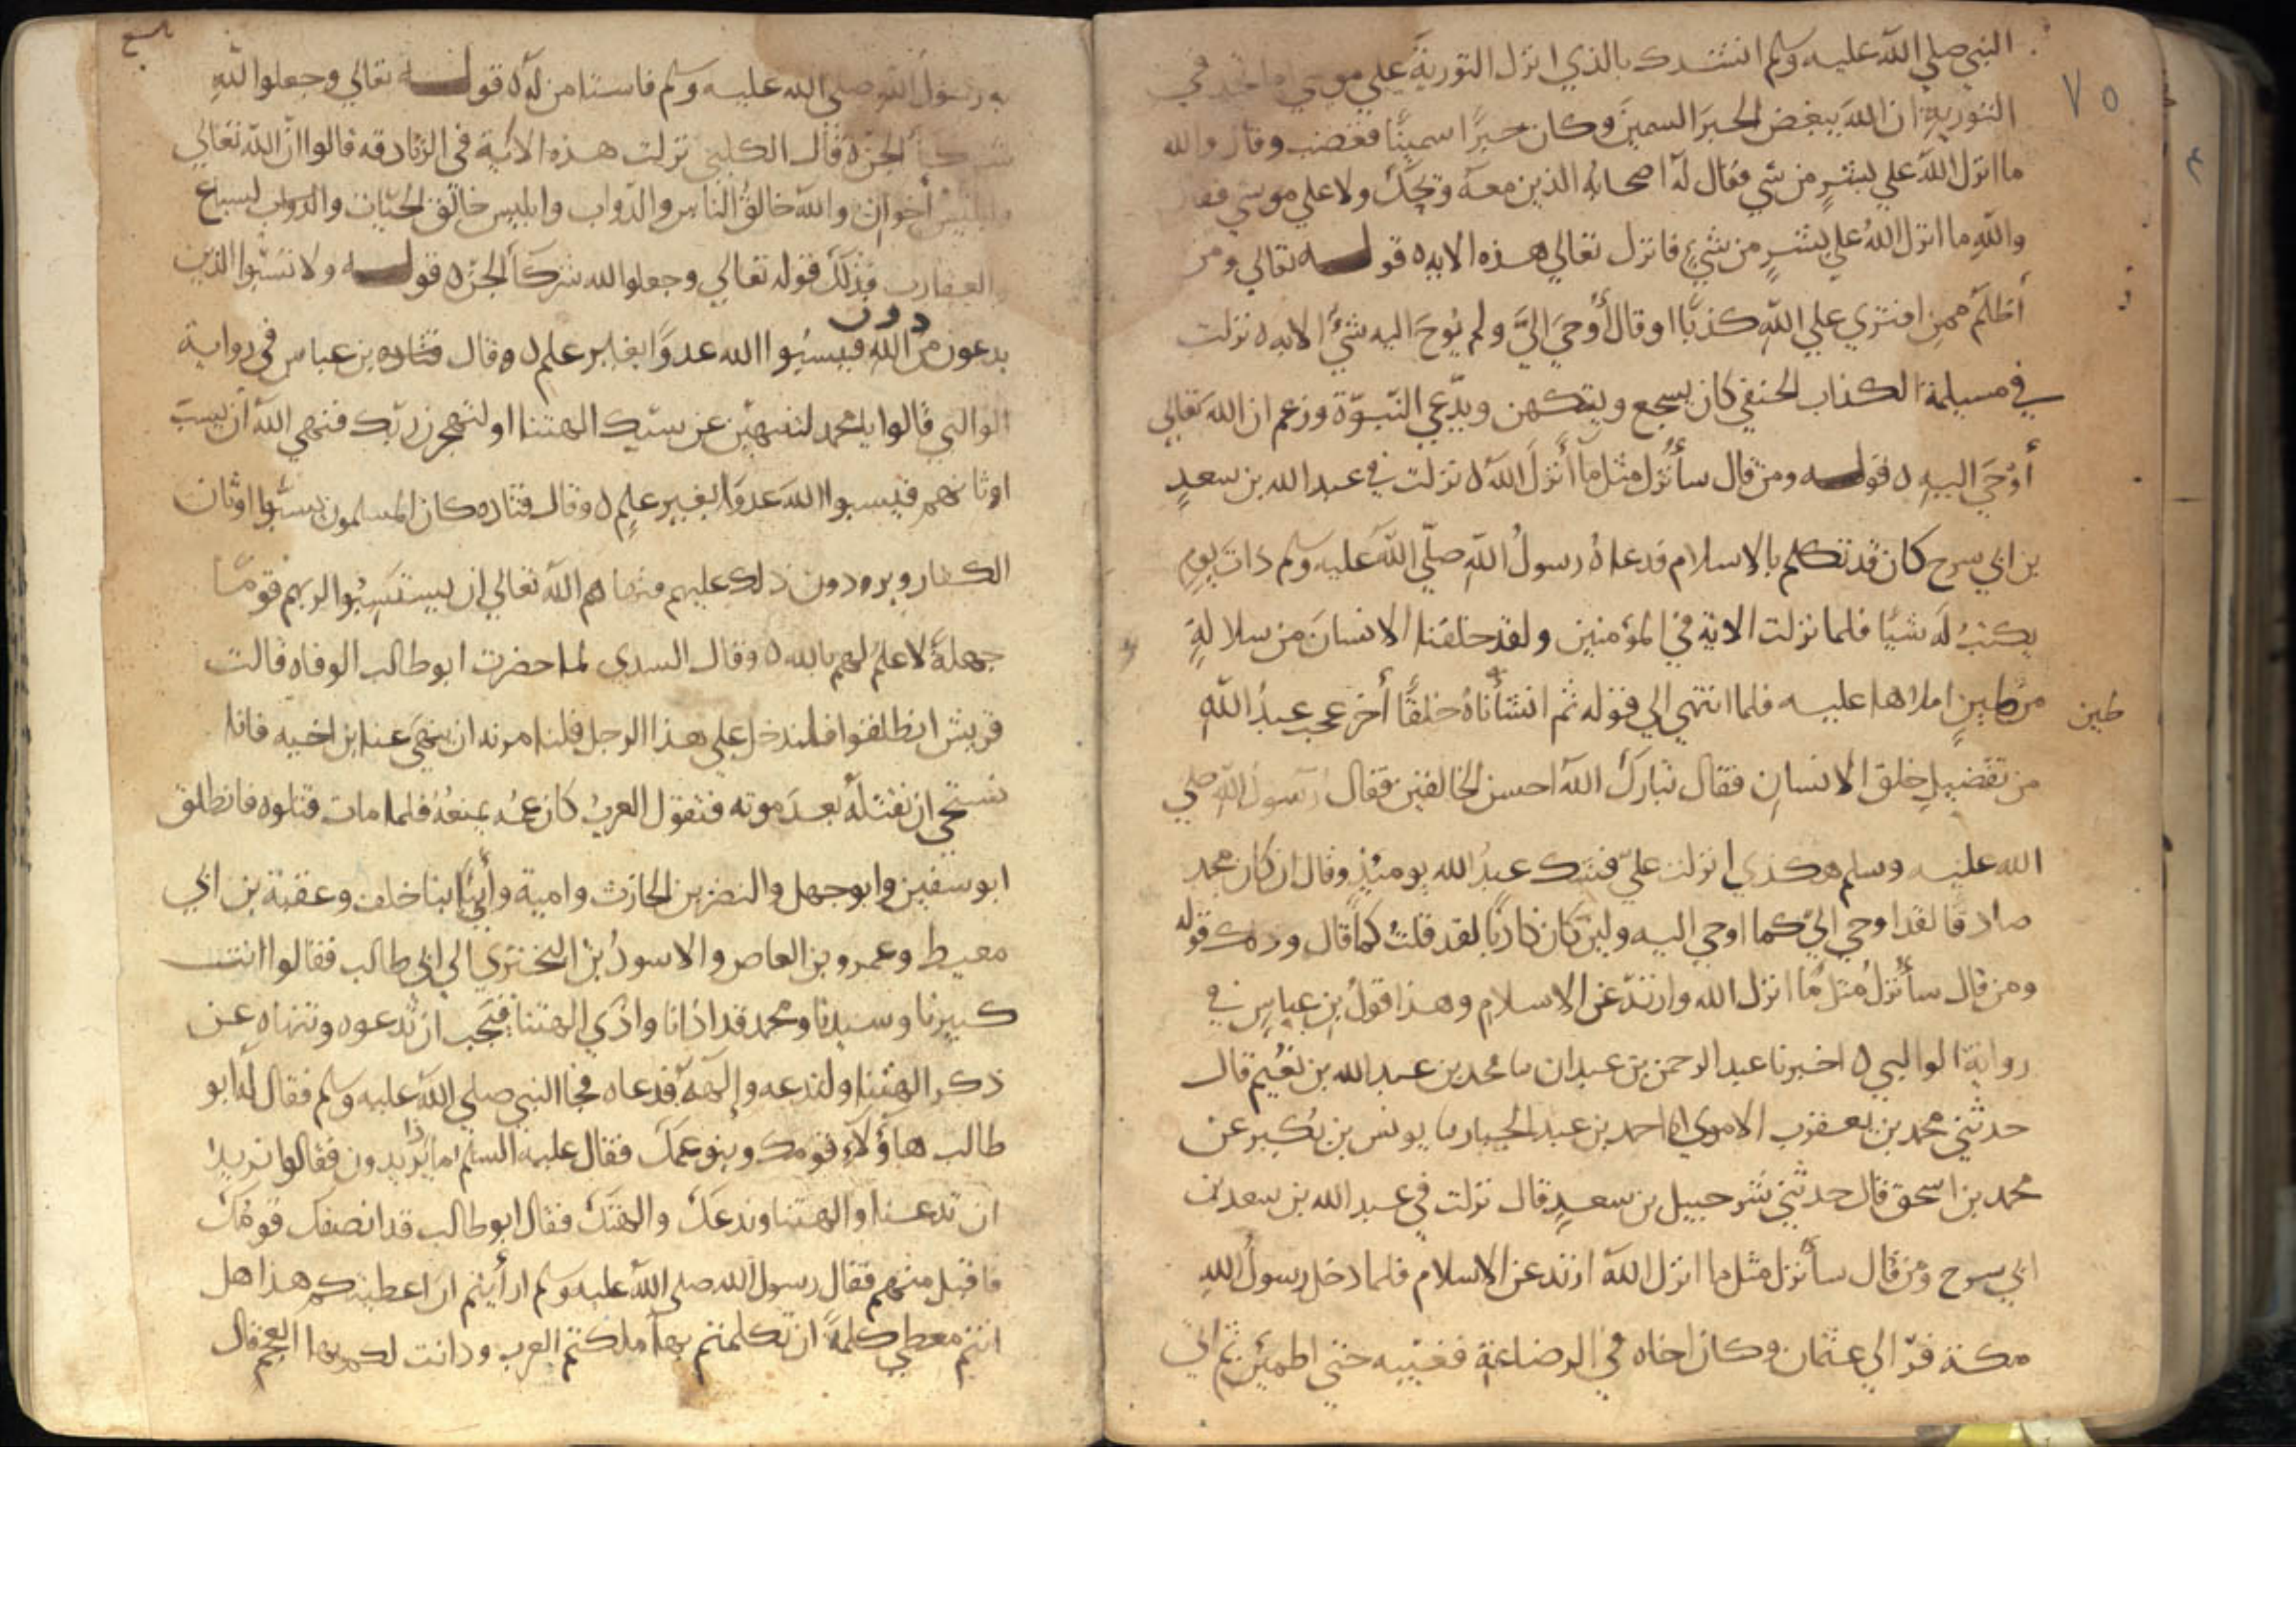 النبي صلي الله عليه وسلم انشدك بالذي انزل التورية علي موسي اما تجد في
٧٥
التورية ان الله يبغض الحبر السمين وكان حبرا سمينا فغضب وقال والله
ما انزل الله علي بشر من شي فقال له اصحابه الذين معه ويحك ولا علي موسي فقال
والله ما انزل الله علي بشر من شيء فانزل تعالي هذه الايه ه قوله تعالي ومن
أظلم ممن افتري علي الله كذبا او قال أوحي الي ولم يوح اليه شيء الايه ه نزلت
في مسيلمة الكذاب الحنفي كان يسجع ويتكهن ويدعي النبوة وزعم ان الله تعالي
أوحي اليه ه قوله ومن قال سأنزل مثل ما أنزل الله ه نزلت في عبد الله بن سعد
بن ابي سرح كان قد تكلم بالاسلام فدعاه رسول الله صلي الله عليه وسلم ذات يوم
يكتب له شيا فلما نزلت الاية في المؤمنين ولقد خلقنا الانسان من سلالة
من طين املاها عليه فلما انتهي الي قوله ثم انشأناه خلقا أخر عجب عبد الله
طين
من تفضيل خلق الانسان فقال تبارك الله احسن الخالقين فقال رسول الله صلي
الله عليه وسلم هكذي انزلت علي فشك عبد الله يوميذ وقال ان كان محمد
صادقا لقد اوحي الي كما اوحي اليه ولين كان كاذبا لقد قلت كما قال وذلك قوله
ومن قال سأنزل مثل ما انزل الله وارتد عن الاسلام وهذا قول بن عباس في
رواية الوالبي ه اخبرنا عبد الرحمن بن عبدان ما محمد بن عبد الله بن نعيم قال
حدثني محمد بن يعقوب الاموي انا احمد بن عبد الجبار ما يونس بن بكير عن
محمد بن اسحق قال حدثني شرحبيل بن سعد قال نزلت في عبد الله بن سعد بن
ابي سرح ومن قال سأنزل مثل ما انزل الله ارتد عن الاسلام فلما دخل رسول الله
مكة فر الي عثمان وكان اخاه في الرضاعة فغيبه حتي اطمئن ثم اتي
به رسول الله صلي الله عليه وسلم فاستامن له ه قوله تعالي وجعلوا لله
شركأ الجن ه قال الكلبي نزلت هذه الاية في الزنادقه قالوا ان الله تعالي
وابليس أخوان والله خالق الناس والدواب وابليس خالق الحيات والسباع
والعقارب فذلك قوله تعالي وجعلوا لله شركأ الجن ه قوله ولا تسبوا الذين
دون
يدعون من الله فيسبوا الله عدوا بغير علم ه وقال قتاده بن عباس في رواية
الوالبي قالوا يا محمد لتنتهين عن سبك الهتنا او لنهجون ربك فنهي الله أن يسب
اوثانهم فيسبوا الله عدوا بغير علم ه وقال قتاده كان المسلمون يسبوا اوثان
الكفار ويردون ذلك عليهم فنهاهم الله تعالي ان يستسبوا لربهم قوما
جهلة لا علم لهم بالله ه وقال السدي لما حضرت ابو طالب الوفاه قالت
قريش انطلقوا فلندخل علي هذا الرجل فلنامرنه ان ينهي عنا ابن اخيه فانا
نستحي ان نقتله بعد موته فتقول العرب كان عمه يمنعه فلما مات قتلوه فانطلق
ابو سفين وابو جهل والنضر بن الحارث وامية وأبي ابنا خلف وعقبة بن ابي
معيط وعمرو بن العاص والاسود بن البختري الي ابي طالب فقالوا انت
كبيرنا وسيدنا ومحمد قد اذانا واذي الهتنا فنحب ان تدعوه وتنهاه عن
ذكر الهتنا ولندعه وإلهه فدعاه فجا النبي صلي الله عليه وسلم فقال له ابو
طالب هاؤلاء قومك وبنو عمك فقال عليه السلم ماذا يريدون فقالوا نريد
ان تدعنا والهتنا وندعك والهتك فقال ابو طالب قد انصفك قومك
فاقبل منهم فقال رسول الله صلي الله عليه وسلم ارأيتم ان اعطيتكم هذا هل
انتم معطي كلمة ان تكلمتم بها ملكتم العرب ودانت لكم بها العجم قال